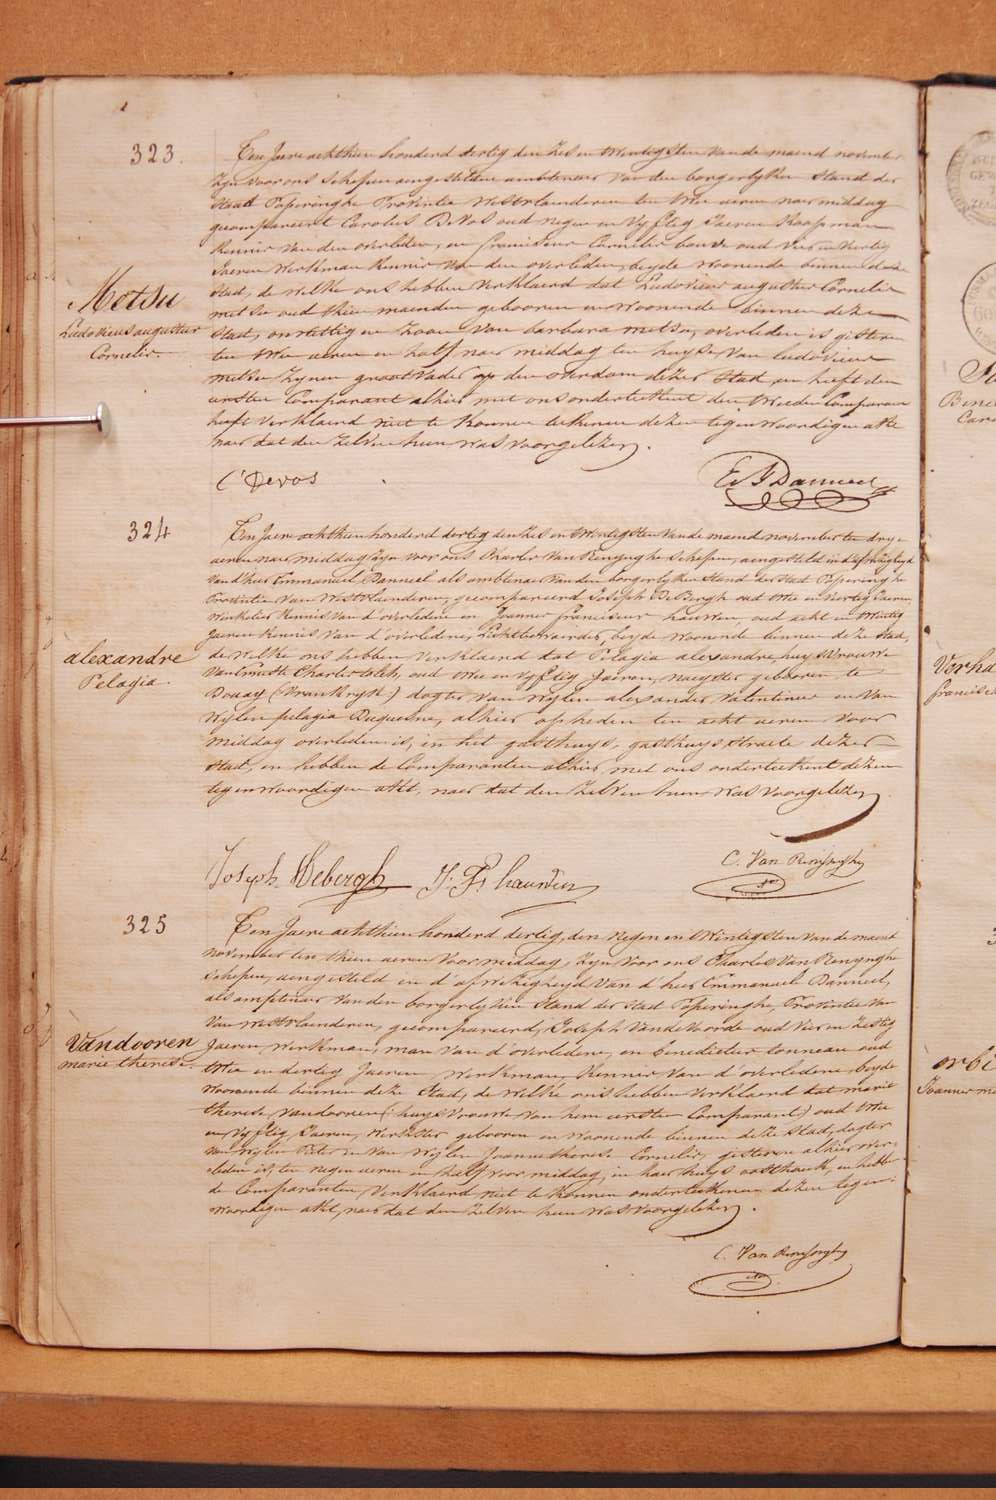 323.
Ten Jaere achthien honderd dertig den Zes en twintigsten van de maend november
Zyn voor ons Schepen aengestelden ambtenaer van den borgerlyken Stand der
Stadt Poperinghe Provintie Westvlaenderen ten twee aeren naer middag
gecompareert Carolus DeVos oud negen en Vyftig Jaeren Koopman
Kennis van den overleden, en Franciscus Cornelis bouve oud Vier en Veertig
Jaeren Werkman Kennis van den overleden, beyde woonende binnen deze
Stad, de welke ons hebben Verklaerd dat Ludovicus augustus Cornelis
metsu oud thien maenden gebooren en woonende binnen deze
Stad, onwettig en Zoon van barbara metsu, overleden is gisteren
ten twee aeren en half naer middag ten huyse van ludovicus
metsu Zynen groot Vader op den overdam dezer Stad, en heeft den
eersten Comparant alhier met ons onderteekent den tweeden Comparant
heeft Verklaerd niet te konnen teekenen dezen tegenwoordigen akte
naer dat den Zelven hun was voorgelezen.
Metsu
Ludovicus augustus
Cornelis
C Devos
E J Danneel
324
Ten Jaere achthien honderd dertig den Zes en twintigsten van de maend november ten dry
aeren naer middag Zyn voor ons Charles Van Renynghe Schepen, aengesteld in d'afwezigheyd
van d'heer Emmanuel Danneel als ambtenaer van den borgerlyken Stand der Stad Poperinghe
Provintie van Westvlaenderen, gecompareerd Joseph DeBergh oud twee en Veertig Jaeren
Winkelier Kennis van d'overledene en Joannes franciscus hauwen, oud acht en twintig
Jaeren Kennis van d'overledene, beyde woonende binnen deze Stad,
de welke ons hebben verklaerd dat Pelagia alexandre, huysvrouwe
van Charles, oud twee en Vyftig Jaeren, naeyster gebooren te
Douay (Vrankryk) dogter van wylen alexander Valentinus en van
Wylen pelagia Duquesne, alhier op heden ten acht aeren voor
middag overleden is, in het gasthuys, gasthuys straete dezer
Stad, en hebben de Comparanten alhier, met ons onderteekent dezen
tegenwoordigen akt, naer dat den Zelven hun was voorgelezen.
alexandre
Pelagia.
Joseph Debergh
J. F. hauwen
C. Van Renynghe
325
Ten Jaere achthien honderd dertig, den negen en twintigsten van de maent
november ten thien aeren voor middag, Zyn voor ons Charles Van Renynghe
Schepen, aengesteld in d'afwezigheyd van d'heer Emmanuel Danneel,
als amptenaer van den borgerlyken Stand der Stad Poperinghe, Provintie van
Van Westvlaenderen, gecompareerd, Joseph Vandevoorde oud Vier en Zestig
Jaeren Werkman, man van d'overledene, en benedictus tonneau oud
twee en dertig Jaeren, Werkman, Kennis van d'overledene, beyde
woonende binnen deze Stad, de welke ons hebben verklaerd dat marie
therese Vandooren (huysvrouwe van hem eersten Comparant) oud twee
en Vyftig Jaeren, Werkster gebooren en woonende binnen deze Stad, dogter
van wylen Pieter en van wylen Joanne therese Cornelis, gisteren alhier over-
leden is, ten negen aeren en half voor middag, in haer huys oosthoek, en hebben
de Comparanten, verklaerd niet te konnen onderteekenen dezen tegen-
woordigen akt, naer dat den Zelven hun was voorgelezen.
Vandooren
marie therese.
C. Van Renynghe
Vorha
Joannes